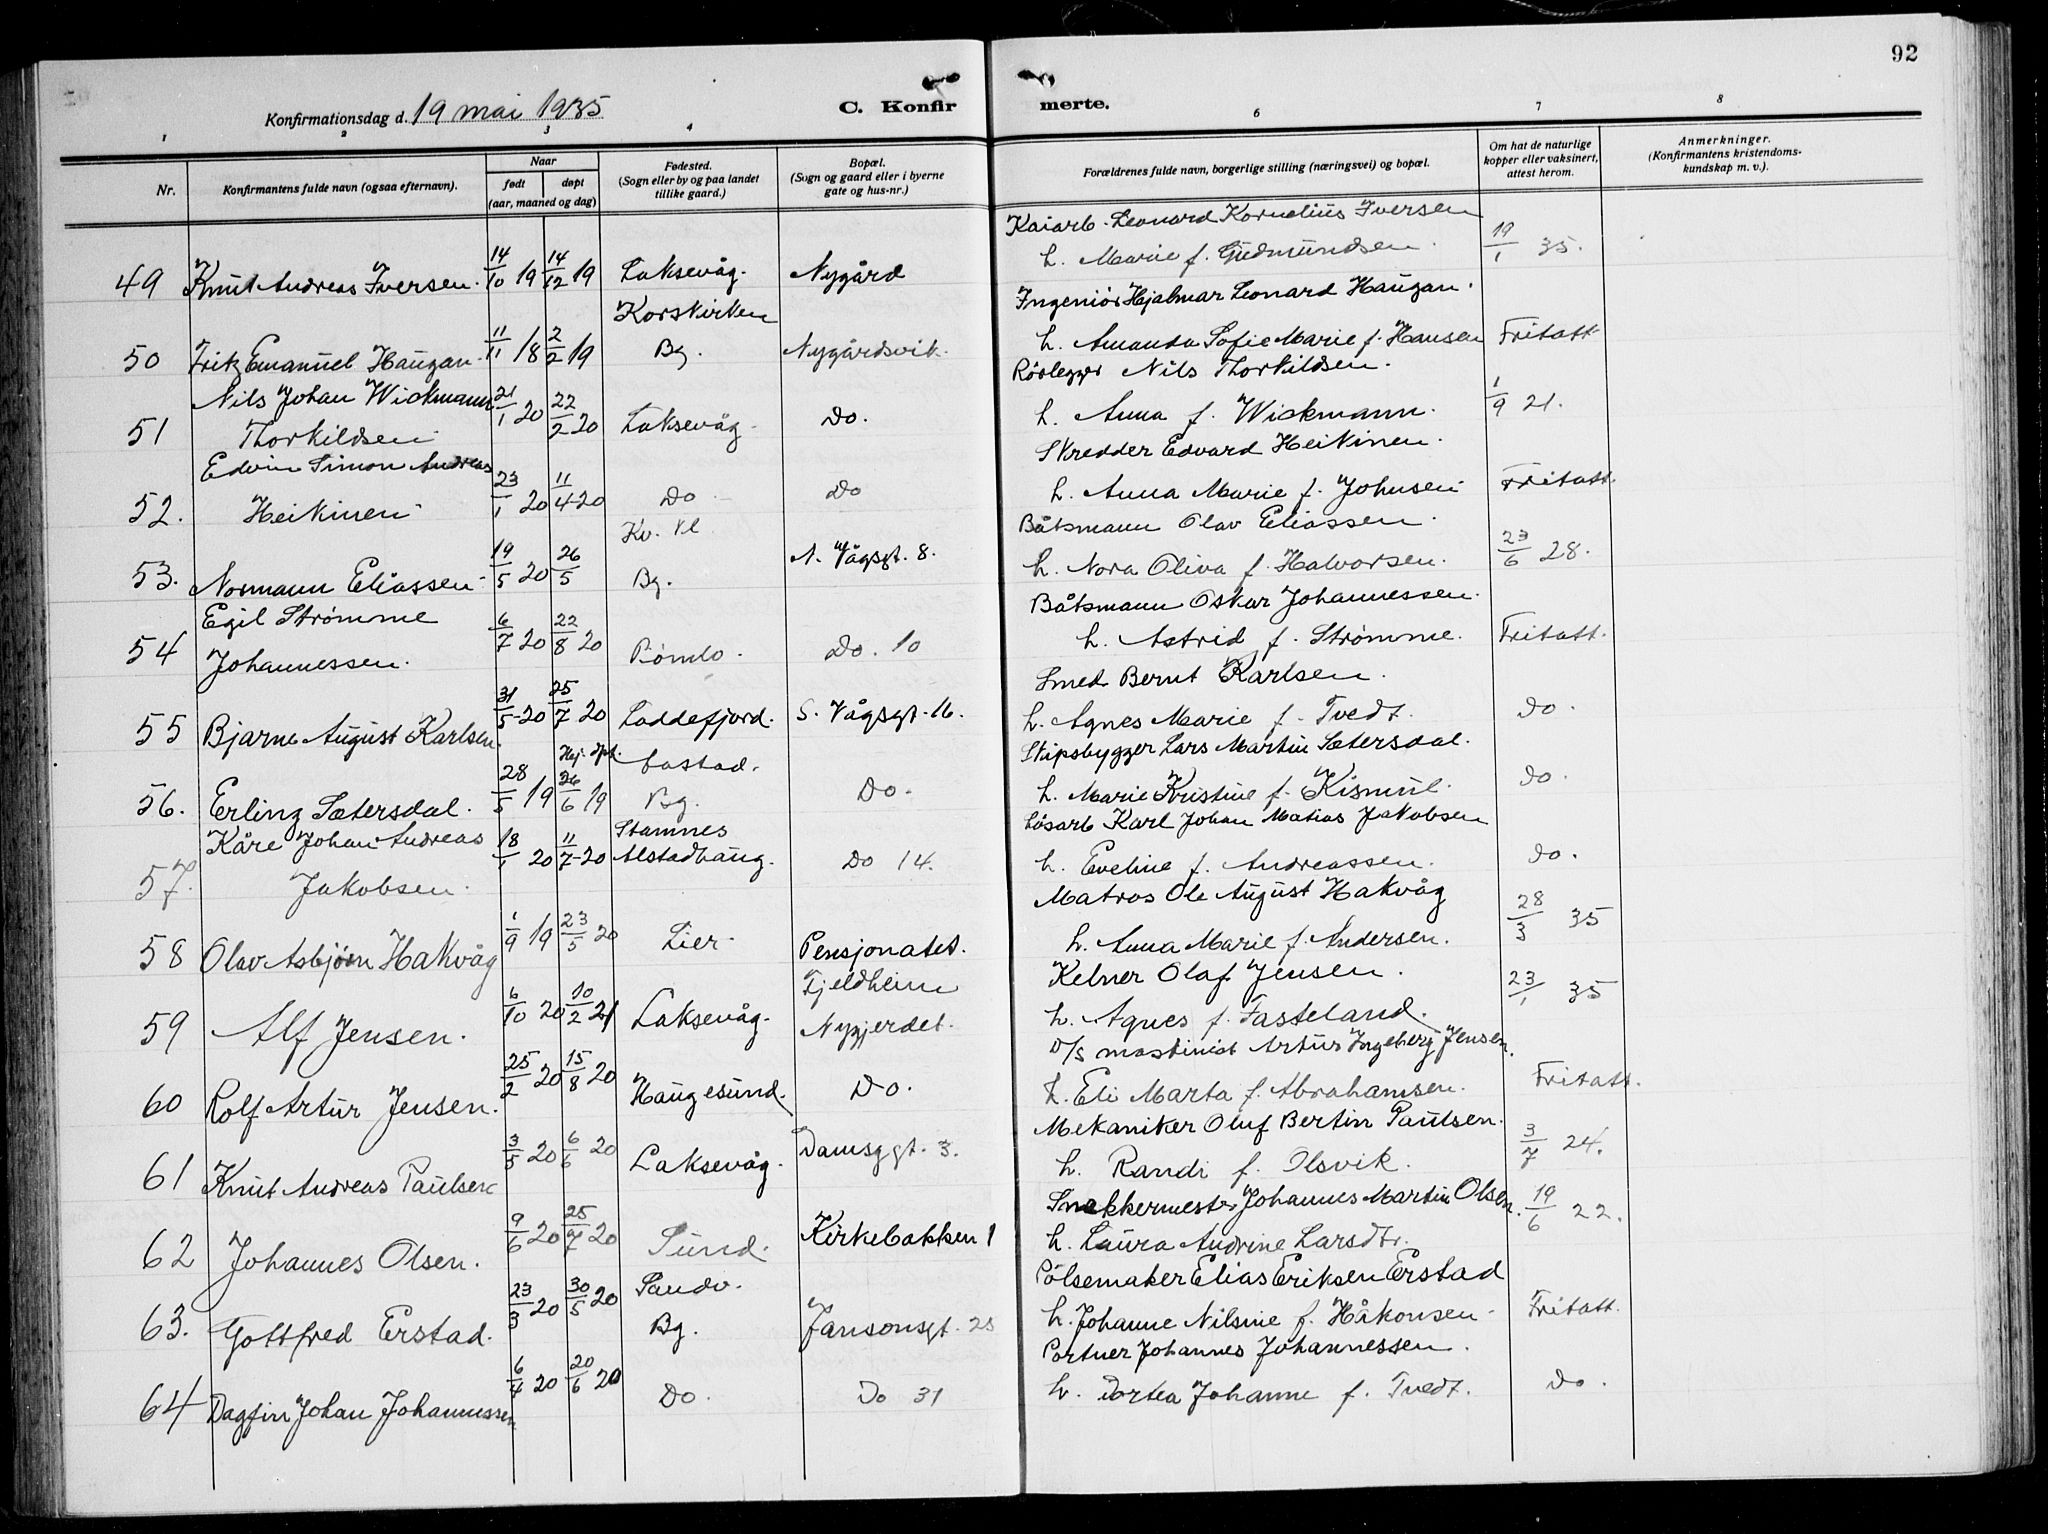 92
Konfirmationsdag d. 19 mai 1935
C. Konfir merte.
1 2 3 4 6 7 8
Nr.
Konfirmantens fulde navn (ogsaa efternavn).
Naar
født døpt
(aar, maaned og dag)
Fødested.
(Sogn eller by og paa landet
tillike gaard.)
Bopæl.
(Sogn og gaard eller i byerne
gate og hus-nr.)
Forældrenes fulde navn, borgerlige stilling (næringsvei) og bopæl.
Om hat de naturlige
kopper eller vaksinert,
attest herom.
Anmerkninger.
(Konfirmantens kristendoms-
kundskap m. v.).
Kaiarb. Leonard Kornelius Iversen
49 Knut Andreas Iversen. 14/10 19 14/12 19 Laksevåg. Nygård h. Marie f. Gudmundsen. 19/1 35.
Korskirken Ingeniör Hjalmar Leonard Haugan.
50 Fritz Emanuel Haugan. 11/11 18 2/2 19 Bg. Nygårdsvik. h. Amanda Sofie Marie f. Hansen Fritatt
Nils Johan Wickmann Rörlegger Nils Thorkildsen.
51 Thorkildsen 21/1 20 22/2 20 Laksevåg. Do. h. Anna f. Wickmann. 1/9 21.
Edvin Simon Andreas Skredder Edvard Heikinen.
52. Heikinen 23/1 20 11/4 20 Do Do h. Anna Marie f. Johnsen Fritatt.
Kv. Kl Båtsmann Olav Eliassen.
53. Normann Eliassen 19/5 20 26/5 Bg. N. Vågsgt. 8. h. Nora Oliva f. Halvorsen. 23/6 28.
Egil Strømme Båtsmann Oskar Johannessen.
54 Johannessen. 6/7 20 22/8 20 Römlo. Do. 10 h. Astrid f. Strømme. Fritatt.
Smed Bernt Karlsen.
55 Bjarne August Karlsen. 31/5 20 25/7 20 Loddefjord. S. Vågsgt. 16. h. Agnes Marie f. Tvedt. Do.
Hj. dpt. Skipsbygger Lars Martin Sætersdal.
56. Erling Sætersdal. 28/5 19 26/6 19 Bg. Do. h. Marie Kristine f. Kismul. Do.
Kåre Johan Andreas Stamnes Lösarb Karl Johan Matias Jakobsen
57. Jakobsen. 18/1 20 11/7 20 Alstadhaug. Do 14. h. Eveline f. Andreassen. Do.
Matros Ole August Hakvåg
58 Olav Asbjörn Hakvåg 1/9 19 23/5 20 Lier. Pensjonatet. h. Anna Marie f. Andersen. 28/3 35
Fjeldheim Kelner Olaf Jensen.
59 Alf Jensen. 6/10 20 10/2 21 Laksevåg. Nygjerdet. h. Agnes f. Fasteland. 23/1 35
D/s maskinist Artur Ingeberg Jensen.
60 Rolf Artur Jensen. 25/2 20 15/8 20 Haugesund. Do. h. Eli Marta f. Abrahamsen. Fritatt.
Mekaniker Oluf Bertin Paulsen.
61 Knut Andreas Paulsen 3/5 20 6/6 20 Laksevåg. Damsggt. 3. h. Randi f. Olsvik. 3/7 24.
Snekkermester Johannes Martin Olsen.
62 Johannes Olsen. 9/6 20 25/7 20 Sund. Kirkebakken 1 h. Laura Andrine Larsdtr. 19/6 22.
Sandv. Pölsemaker Elias Eriksen Erstad
63. Gottfred Erstad. 23/3 20 30/5 20 Bg. Jansonsgt. 25 h. Johanne Nilsine f. Håkonsen Fritatt.
Portner Johannes Johannessen.
64 Dagfin Johan Johannessen 6/4 20 20/6 20 Do. Do 31 h. Dortea Johanne f. Tvedt. Do.